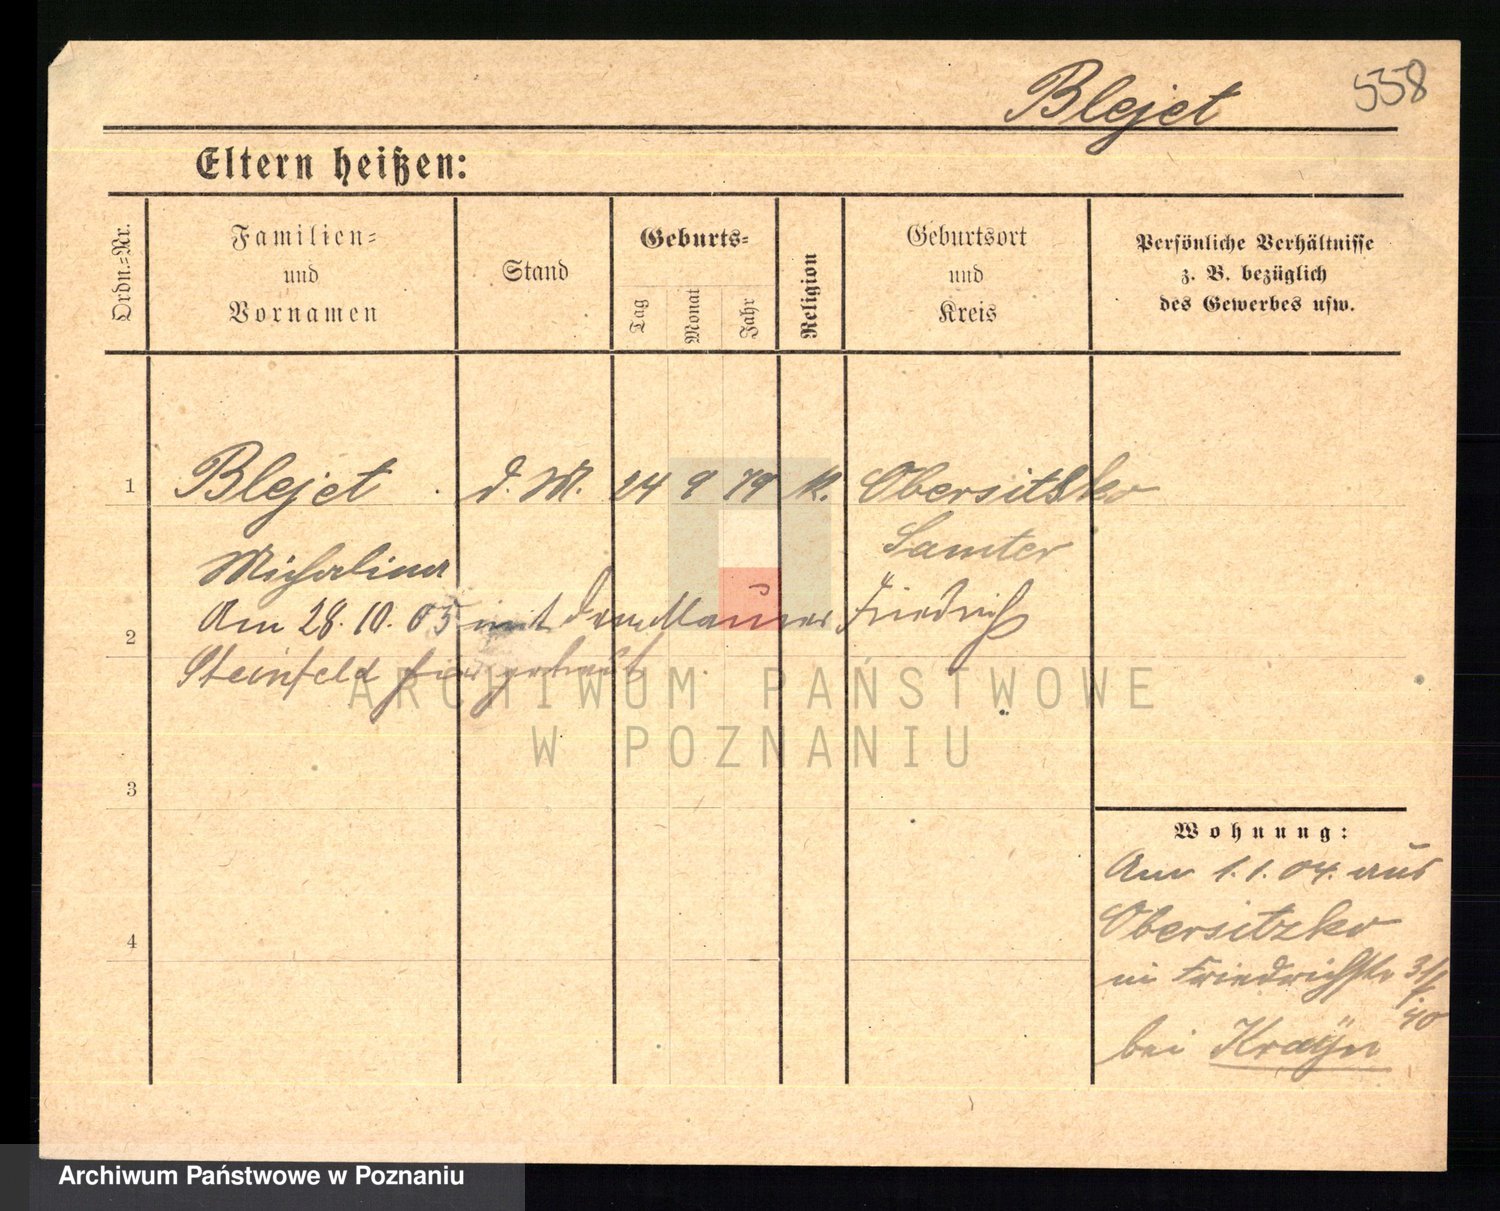 Blejet 558
Eltern heißen:
Ordn.=Nr.
Familien=
und
Vornamen
Stand
Geburts=
Tag
Monat
Jahr
Religion
Geburtsort
und
Kreis
Persönliche Verhältnisse
z. B. bezüglich
des Gewerbes usw.
1 Blejet d. M. 24 9 79 K. Obersitzko
Samter
Michalina
2 Am 28. 10. 05 mit dem Maurer Friedrich
Steinfeld hier getraut
ARCHIWUM PAŃSTWOWE
W POZNANIU
3
Wohnung:
Am 1. 1. 04. aus
Obersitzko
4
in Friedrichstr 31
bei Krayn
Archiwum Państwowe w Poznaniu